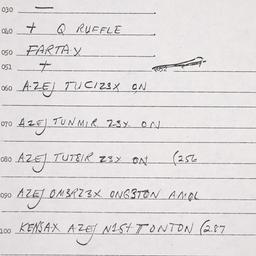 030 —
040 + Q RUFFLE
050 FARTAX
051 +
060 AZEJ TUCIZ3X ON
070 AZEJ TUNMIR Z3X ON
080 AZEJ TUTEIR Z3X ON (256
090 AZEJ OM3RZ3X ONG3TON AMOL
100 KENSAX AZEJ N1S4 TONTON (287